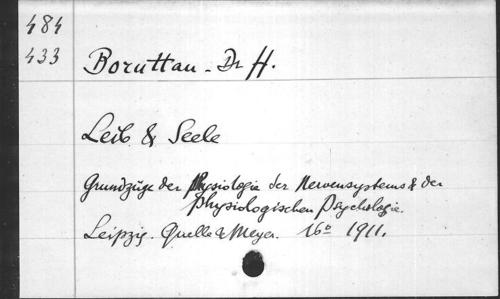 484
433
Boruttau - Dr H.
Leib & Seele
Grundzüge der Physiologie des Nervensystems & der
physiologischen Psychologie.
Leipzig. Quelle & Meyer. 16° 1911.